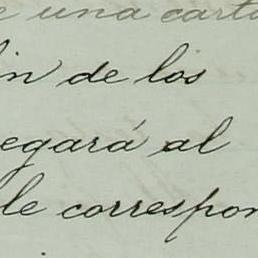 e una carta
in de los
egará al
le correspon